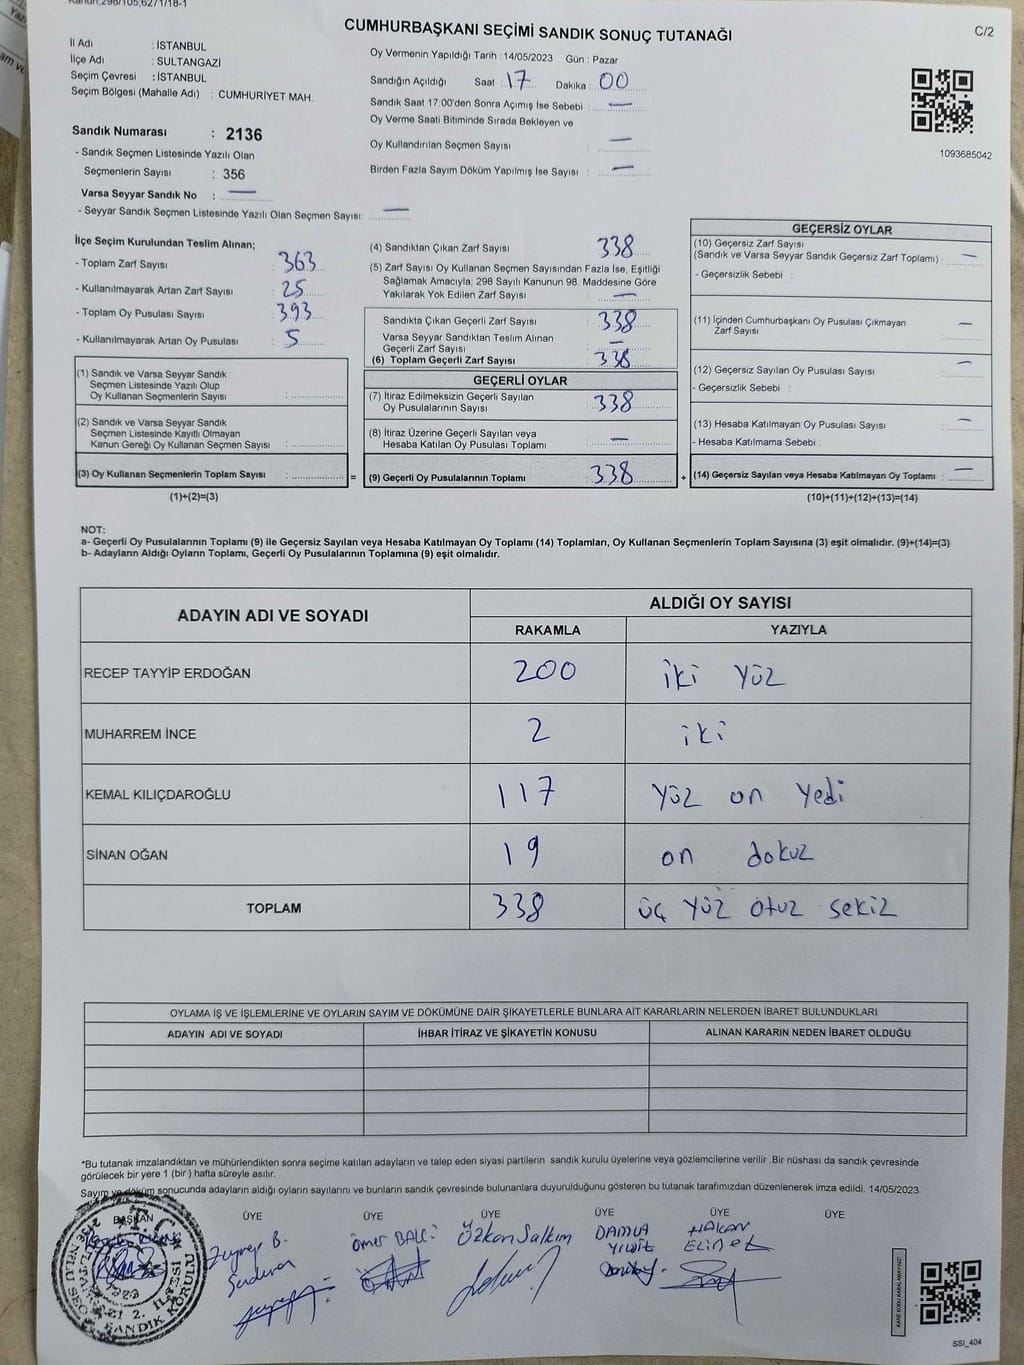 CUMHURBAŞKANI SEÇİMİ SANDIK SONUÇ TUTANAĞI
C/2
İl Adı : İSTANBUL
İlçe Adı : SULTANGAZİ
Seçim Çevresi : İSTANBUL
Seçim Bölgesi (Mahalle Adı) : CUMHURİYET MAH.
Sandık Numarası : 2136
- Sandık Seçmen Listesinde Yazılı Olan
Seçmenlerin Sayısı : 356
Varsa Seyyar Sandık No : —
- Seyyar Sandık Seçmen Listesinde Yazılı Olan Seçmen Sayısı: —
Oy Vermenin Yapıldığı Tarih : 14/05/2023 Gün : Pazar
Sandığın Açıldığı Saat : 17 Dakika : 00
Sandık Saat 17:00'den Sonra Açımış İse Sebebi : —
Oy Verme Saati Bitiminde Sırada Bekleyen ve
Oy Kullandırılan Seçmen Sayısı : —
Birden Fazla Sayım Döküm Yapılmış İse Sayısı : —
1093685042
İlçe Seçim Kurulundan Teslim Alınan;
- Toplam Zarf Sayısı : 363
- Kullanılmayarak Artan Zarf Sayısı : 25
- Toplam Oy Pusulası Sayısı : 393
- Kullanılmayarak Artan Oy Pusulası : 5
(1) Sandık ve Varsa Seyyar Sandık
Seçmen Listesinde Yazılı Olup
Oy Kullanan Seçmenlerin Sayısı :
(2) Sandık ve Varsa Seyyar Sandık
Seçmen Listesinde Kayıtlı Olmayan
Kanun Gereği Oy Kullanan Seçmen Sayısı :
(3) Oy Kullanan Seçmenlerin Toplam Sayısı : =
(1)+(2)=(3)
(4) Sandıktan Çıkan Zarf Sayısı : 338
(5) Zarf Sayısı Oy Kullanan Seçmen Sayısından Fazla İse, Eşitliği
Sağlamak Amacıyla; 298 Sayılı Kanunun 98. Maddesine Göre
Yakılarak Yok Edilen Zarf Sayısı : —
Sandıkta Çıkan Geçerli Zarf Sayısı : 338
Varsa Seyyar Sandıktan Teslim Alınan
Geçerli Zarf Sayısı : —
(6) Toplam Geçerli Zarf Sayısı : 338
GEÇERLİ OYLAR
(7) İtiraz Edilmeksizin Geçerli Sayılan
Oy Pusulalarının Sayısı : 338
(8) İtiraz Üzerine Geçerli Sayılan veya
Hesaba Katılan Oy Pusulası Toplamı : —
(9) Geçerli Oy Pusulalarının Toplamı : 338 +
GEÇERSİZ OYLAR
(10) Geçersiz Zarf Sayısı
(Sandık ve Varsa Seyyar Sandık Geçersiz Zarf Toplamı) : —
- Geçersizlik Sebebi :
(11) İçinden Cumhurbaşkanı Oy Pusulası Çıkmayan
Zarf Sayısı : —
(12) Geçersiz Sayılan Oy Pusulası Sayısı : —
- Geçersizlik Sebebi :
(13) Hesaba Katılmayan Oy Pusulası Sayısı : —
- Hesaba Katılmama Sebebi :
(14) Geçersiz Sayılan veya Hesaba Katılmayan Oy Toplamı : —
(10)+(11)+(12)+(13)=(14)
NOT:
a- Geçerli Oy Pusulalarının Toplamı (9) ile Geçersiz Sayılan veya Hesaba Katılmayan Oy Toplamı (14) Toplamları, Oy Kullanan Seçmenlerin Toplam Sayısına (3) eşit olmalıdır. (9)+(14)=(3)
b- Adayların Aldığı Oyların Toplamı, Geçerli Oy Pusulalarının Toplamına (9) eşit olmalıdır.
ADAYIN ADI VE SOYADI
ALDIĞI OY SAYISI
RAKAMLA YAZIYLA
RECEP TAYYİP ERDOĞAN 200 iki yüz
MUHARREM İNCE 2 iki
KEMAL KILIÇDAROĞLU 117 yüz on yedi
SİNAN OĞAN 19 on dokuz
TOPLAM 338 üç yüz otuz sekiz
OYLAMA İŞ VE İŞLEMLERİNE VE OYLARIN SAYIM VE DÖKÜMÜNE DAİR ŞİKAYETLERLE BUNLARA AİT KARARLARIN NELERDEN İBARET BULUNDUKLARI
ADAYIN ADI VE SOYADI İHBAR İTİRAZ VE ŞİKAYETİN KONUSU ALINAN KARARIN NEDEN İBARET OLDUĞU
*Bu tutanak imzalandıktan ve mühürlendikten sonra seçime katılan adayların ve talep eden siyasi partilerin sandık kurulu üyelerine veya gözlemcilerine verilir .Bir nüshası da sandık çevresinde
görülecek bir yere 1 (bir ) hafta süreyle asılır.
Sayım ve döküm sonucunda adayların aldığı oyların sayılarını ve bunların sandık çevresinde bulunanlara duyurulduğunu gösteren bu tutanak tarafımızdan düzenlenerek imza edildi. 14/05/2023
BAŞKAN ÜYE ÜYE ÜYE ÜYE ÜYE ÜYE
Zeynep B.
Ömer BALCı
Özkan Salkım
HAKAN
T.C.
SANDIK KURULU
SSİ_404